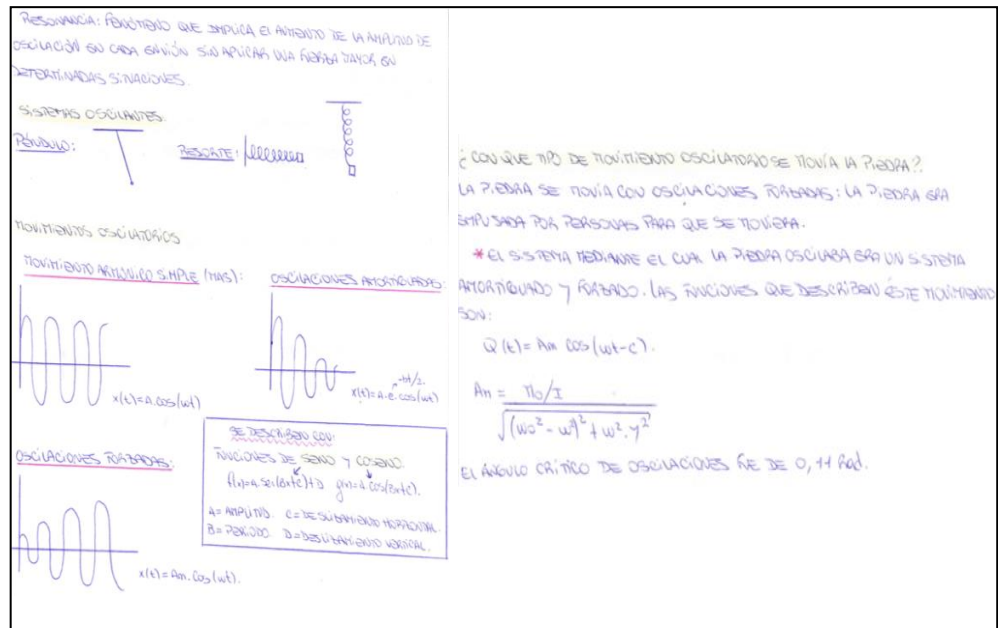 RESONANCIA: FENÓMENO QUE IMPLICA EL AUMENTO DE LA AMPLITUD DE
OSCILACIÓN EN CADA ENVIÓN SIN APLICAR UNA FUERZA MAYOR EN
DETERMINADAS SITUACIONES.
SISTEMAS OSCILANTES
PÉNDULO:
RESORTE:
MOVIMIENTOS OSCILATORIOS
MOVIMIENTO ARMÓNICO SIMPLE (MAS):
x(t)=A.cos(ωt)
OSCILACIONES AMORTIGUADAS:
x(t)=A.e cos(ωt)
SE DESCRIBEN CON:
FUNCIONES DE SENO Y COSENO.
f(x)=A.sen(Bx+C)+D g(x)=A.cos(Bx+C).
A= AMPLITUD. C=DESLIZAMIENTO HORIZONTAL.
B= PERÍODO. D=DESLIZAMIENTO VERTICAL.
OSCILACIONES FORZADAS:
x(t)=Am.Cos(ωt).
¿CON QUE TIPO DE MOVIMIENTO OSCILATORIO SE MOVÍA LA PIEDRA?
LA PIEDRA SE MOVÍA CON OSCILACIONES FORZADAS: LA PIEDRA ERA
EMPUJADA POR PERSONAS PARA QUE SE MOVIERA.
*EL SISTEMA MEDIANTE EL CUAL LA PIEDRA OSCILABA ERA UN SISTEMA
AMORTIGUADO Y FORZADO. LAS FUNCIONES QUE DESCRIBEN ÉSTE MOVIMIENTO
SON:
Q(t)= Am cos(ωt-c).
Am = M0/I
√(ω0²-ω²)²+ω².γ²
EL ÁNGULO CRÍTICO DE OSCILACIONES FUE DE 0,11 Rad.